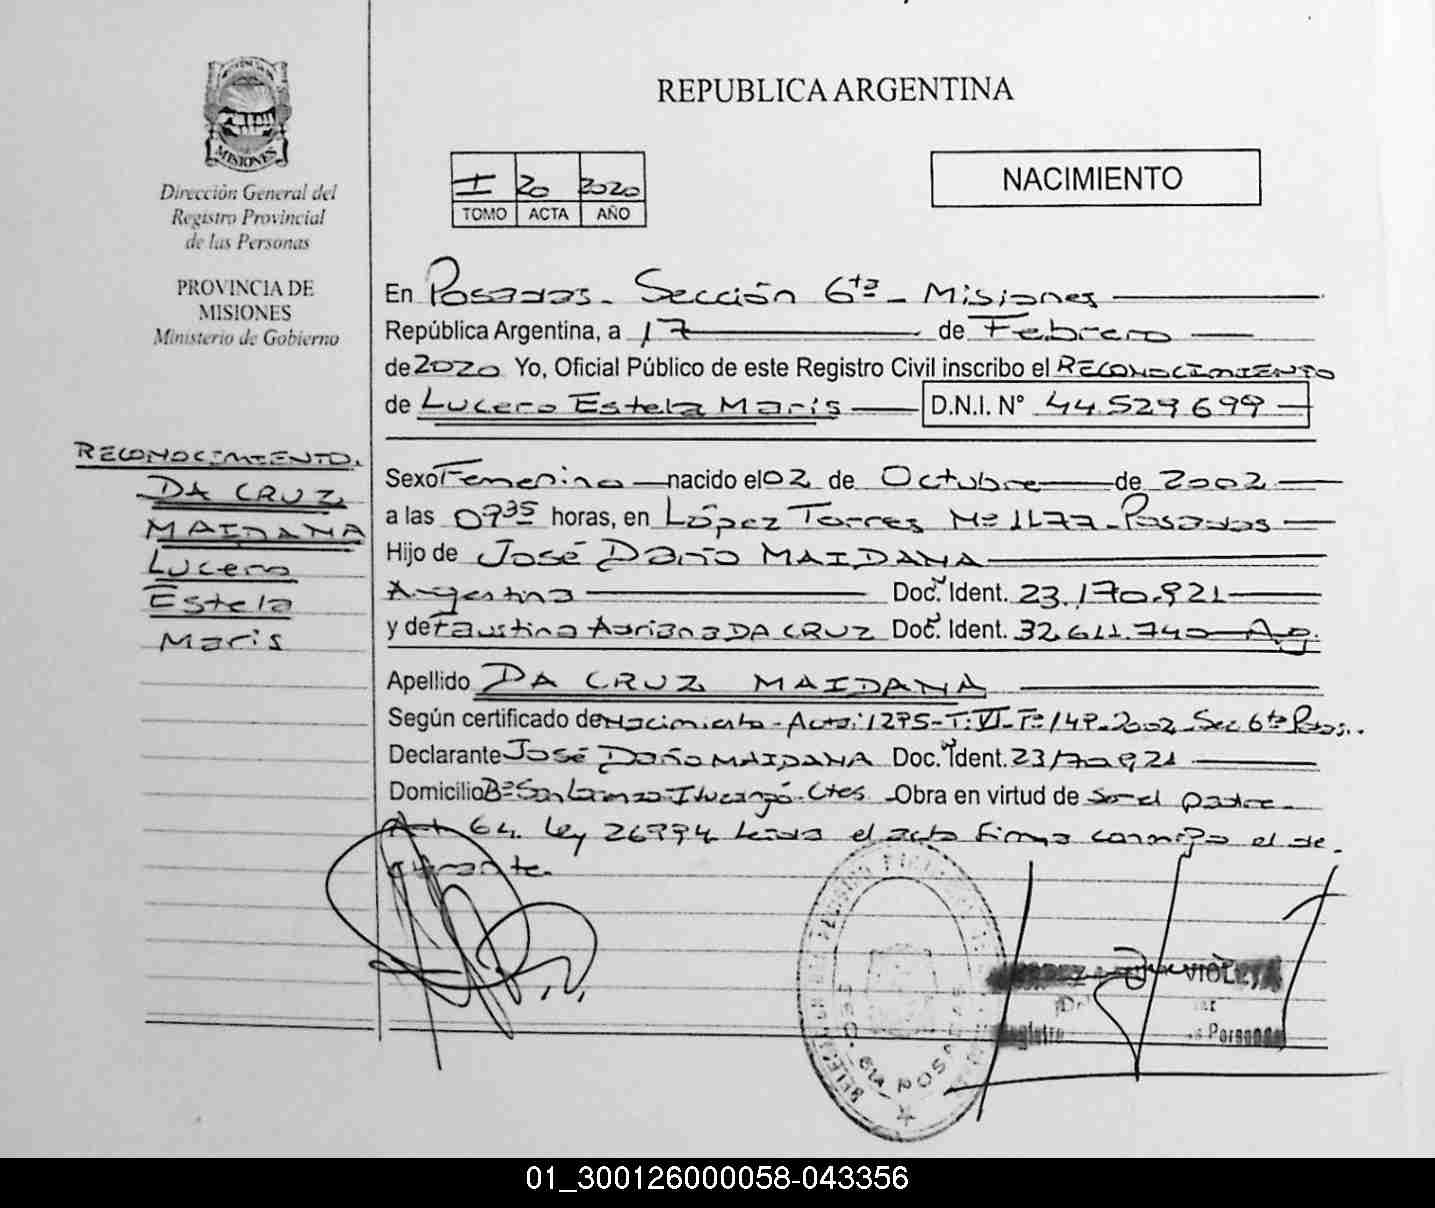 MISIONES
Dirección General del
Registro Provincial
de las Personas
PROVINCIA DE
MISIONES
Ministerio de Gobierno
RECONOCIMIENTO.
DA CRUZ
MAIDANA
Lucero
Estela
Maris
REPUBLICA ARGENTINA
I 20 2020
TOMO ACTA AÑO
NACIMIENTO
En Posadas - Sección 6ta - Misiones
República Argentina, a 17 de Febrero
de 2020 Yo, Oficial Público de este Registro Civil inscribo el RECONOCIMIENTO
de Lucero Estela Maris D.N.I. N° 44.529.699
Sexo Femenino nacido el 02 de Octubre de 2002
a las 07 35 horas, en López Torres Nº 1177 - Posadas
Hijo de José Darío MAIDANA
Argentina Doc. Ident. 23.170.921
y de Faustina Adriana DA CRUZ Doc. Ident. 32.611.740 Arg.
Apellido DA CRUZ MAIDANA
Según certificado de Nacimiento - Acta: 1275 - T: VI - Fº 149 - 2002 Sec 6ta
Declarante José Darío MAIDANA Doc. Ident. 23170921
Domicilio Bº San Lorenzo - Ituzaingó - Ctes - Obra en virtud de ser el padre -
Art 64 Ley 26994 Leída el acta firma conmigo el de-
clarante.
VIOLETA
POSADAS
01_300126000058-043356